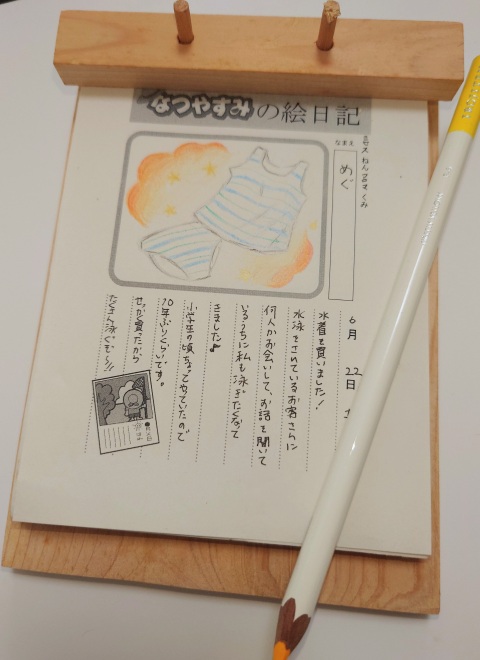 なつやすみの絵日記
なまえ
めぐ
6月22日
水着を買いました！
水泳をされているお客さんに
何人かお会いして、お話を聞いて
いるうちに私も泳ぎたくなって
きました♪
小学生の頃ならってやっていたので
10年ぶりくらいです。
せっかく買ったから
たくさん泳ぐぞ〜!!